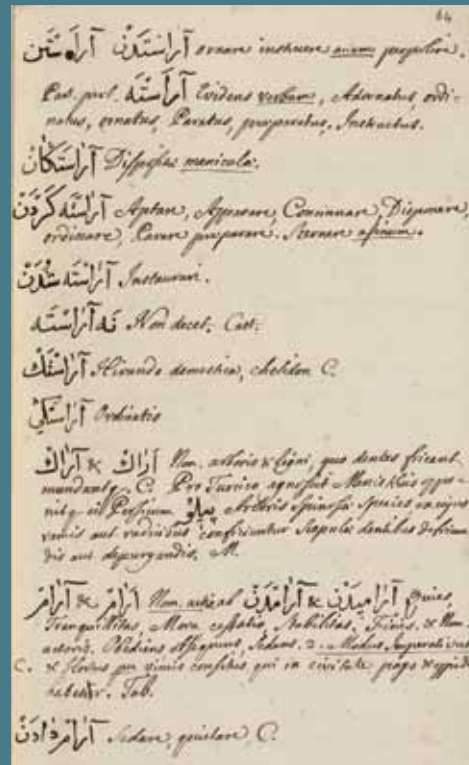 64
آراستدن آراستن ornare instruere propolire.
Pas. part. آراسته Evidens verbum, Adornatus, ordi-
natus, ornatus, Paratus, praeparatus. Instructus.
آراستكان Dispositae
آراسته كردن Aptare, Apparare, Concinnare, Disponere,
ordinare, Parare praeparare. Sternere asinum.
آراسته شدن Instaurari.
نه آراسته Non decet. Cast.
آراستك Hirundo domestica, chelidon C.
آراستكى Ordinatio
آراك & اراك Nom. arboris & ligni, quo dentes fricant
mundantq. C. Pro Turcico agnoscit
nitq. Persicum پيلو Arboris Spinosa Species ex cujus
ramis aut radicibus conficiuntur dentibus defrican-
dis aut depurgandis. M.
آرام & ارام Nom. ab آرامدن & آراميدن Quies,
Tranquillitas, Mora cessatio, Stabilitas, & Nom.
actoris. Obediens Sedans. 2. Modus Imperativus
C. & qui in civitate pago & oppido
habetur. Tab.
آرام دادن Sedare, quietare, C.